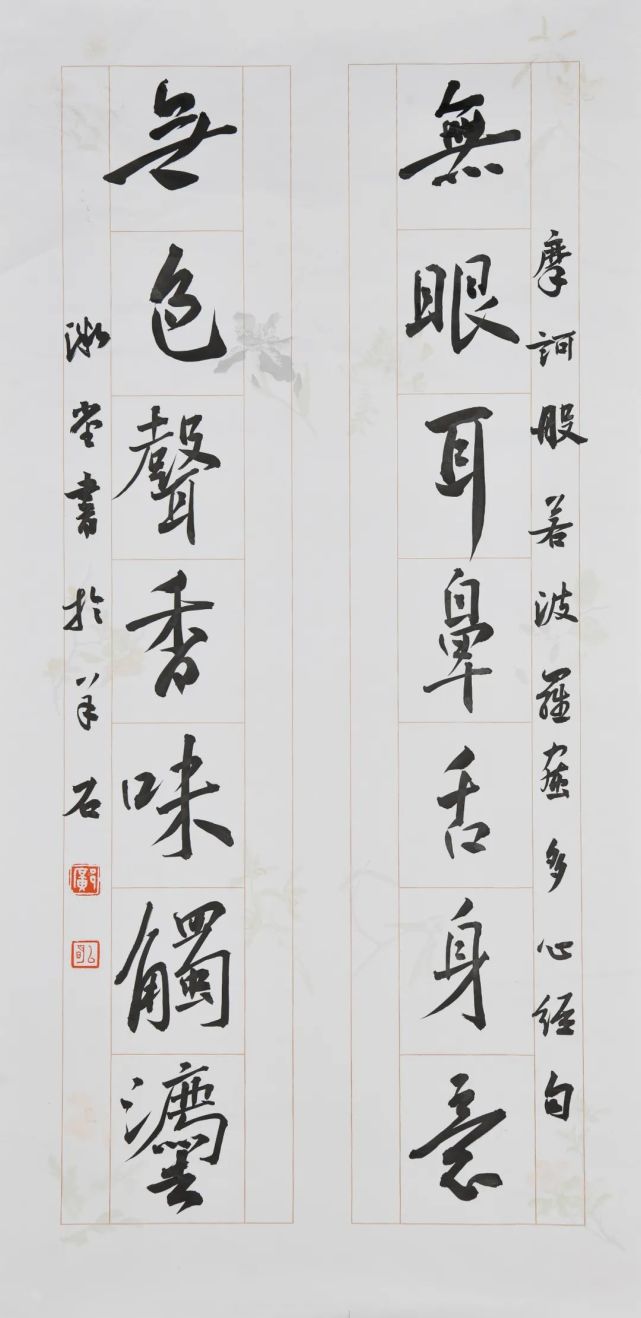 摩訶般若波羅蜜多心經句
無眼耳鼻舌身意
無色聲香味觸灋
堂書於羊石